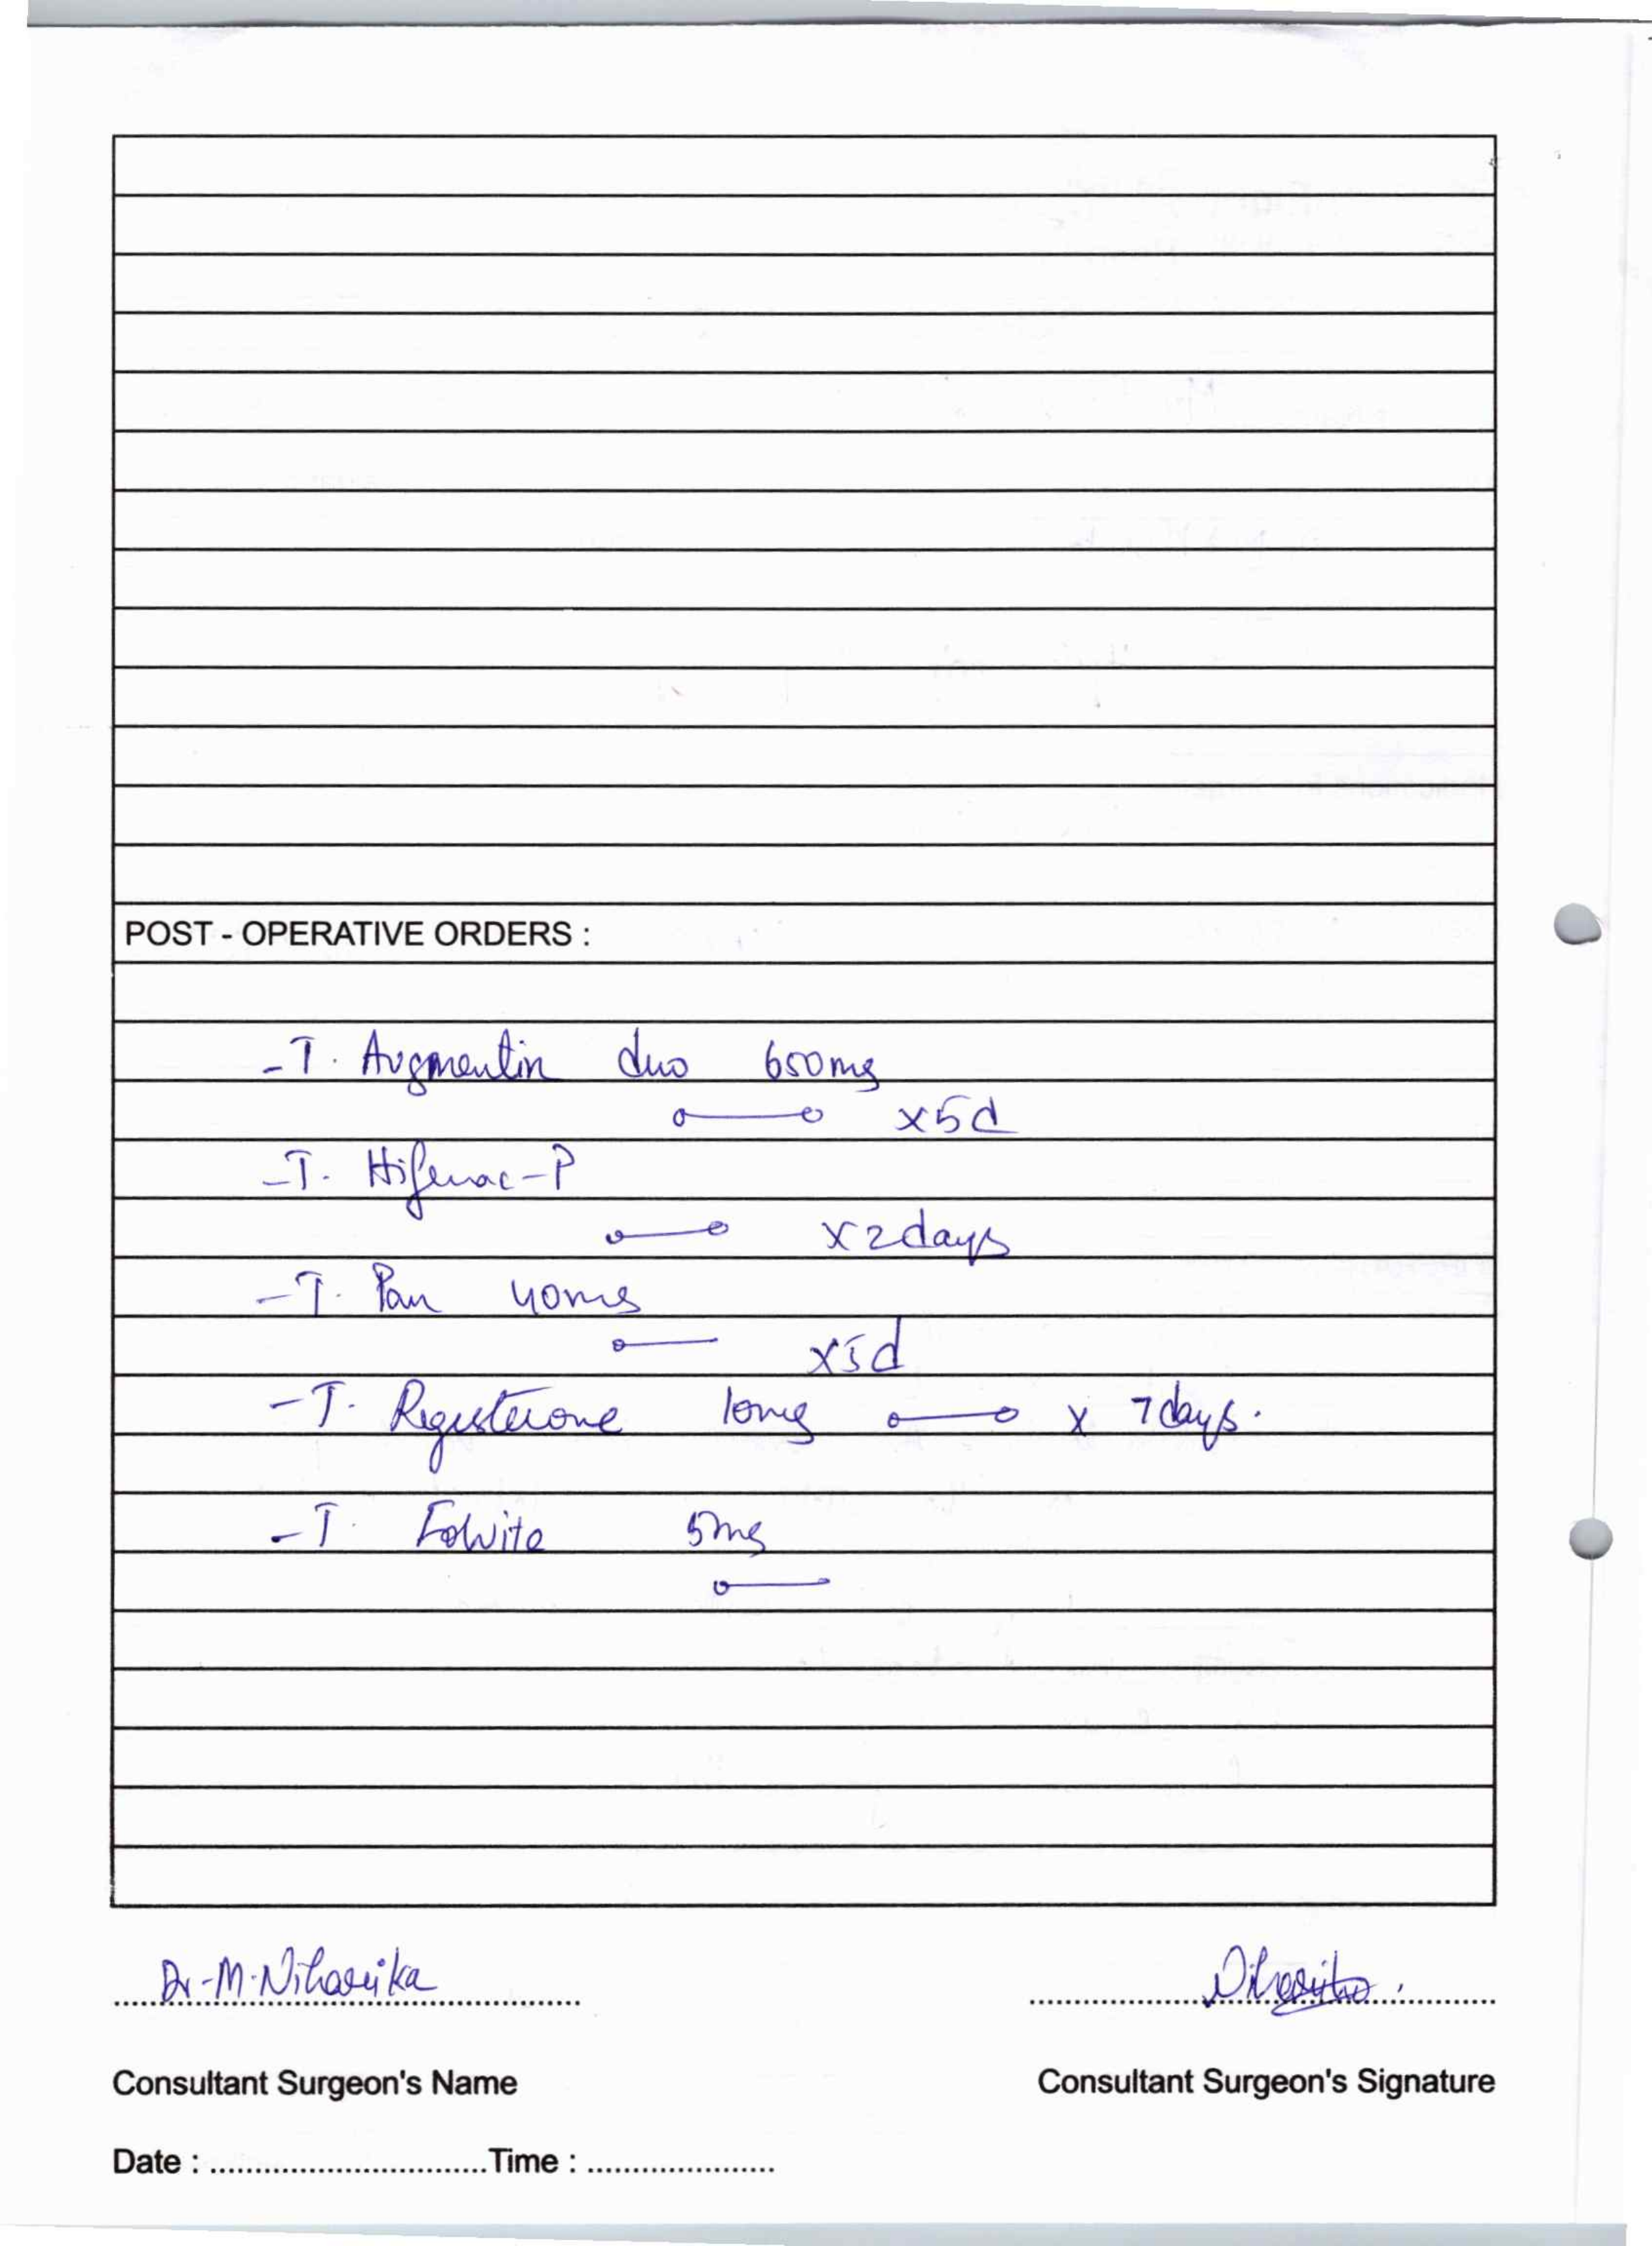 POST - OPERATIVE ORDERS :
- T. Augmentin duo 650mg
o——o x5d
- T. Hifenac-P
o——o x2days
- T. Pan 40mg
o—— x5d
- T. Regesterone 10mg o——o x 7days.
- T. Folvite 5mg
o——
Dr-M.Niharika Niharika.
Consultant Surgeon's Name Consultant Surgeon's Signature
Date : ............................... Time : .....................